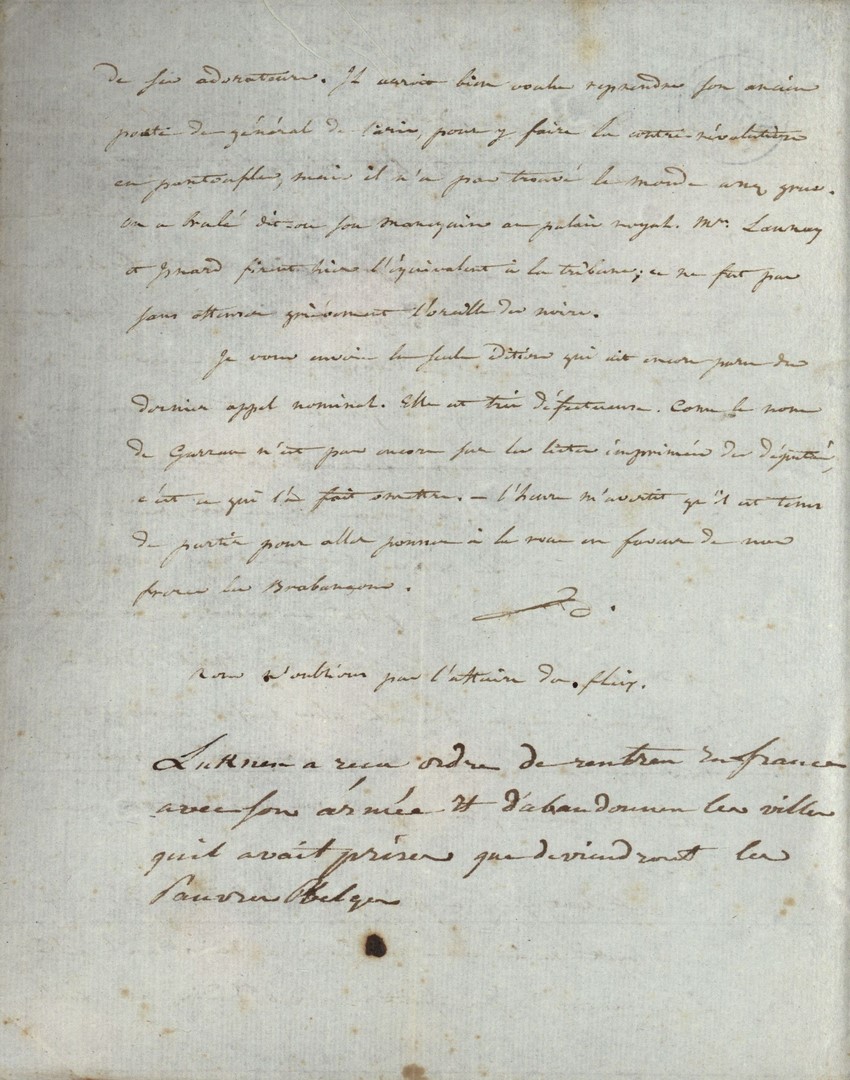 de ses adorateurs. Il auroit bien voulu reprendre son ancien
poste de général de Paris, pour y faire la contre-révolution
en pantoufles, mais il n'a pas trouvé le monde assez grue.
on a brulé dit-on son mannequin au palais royal. Mrs. Launay
et Isnard firent hier l'équivalent à la tribune; ce ne fut pas
sans offenser grièvement l'oreille des noirs.
Je vous envoie la seule édition qui ait encore paru du
dernier appel nominal. Elle est très défectueuse. Come le nom
de Garrau n'est pas encore sur les listes imprimées des députés,
c'est ce qui l'a fait omettre. - l'heure m'avertit qu'il est tems
de partir pour aller pousser à la roue en faveur de nos
frères les Brabançons.
Nous n'oublions pas l'affaire du
Lukner a recu ordre de rentrer En france
avec son ármée Et d'abandonner les villes
quil avait prises que deviendront les
Pauvres Belges